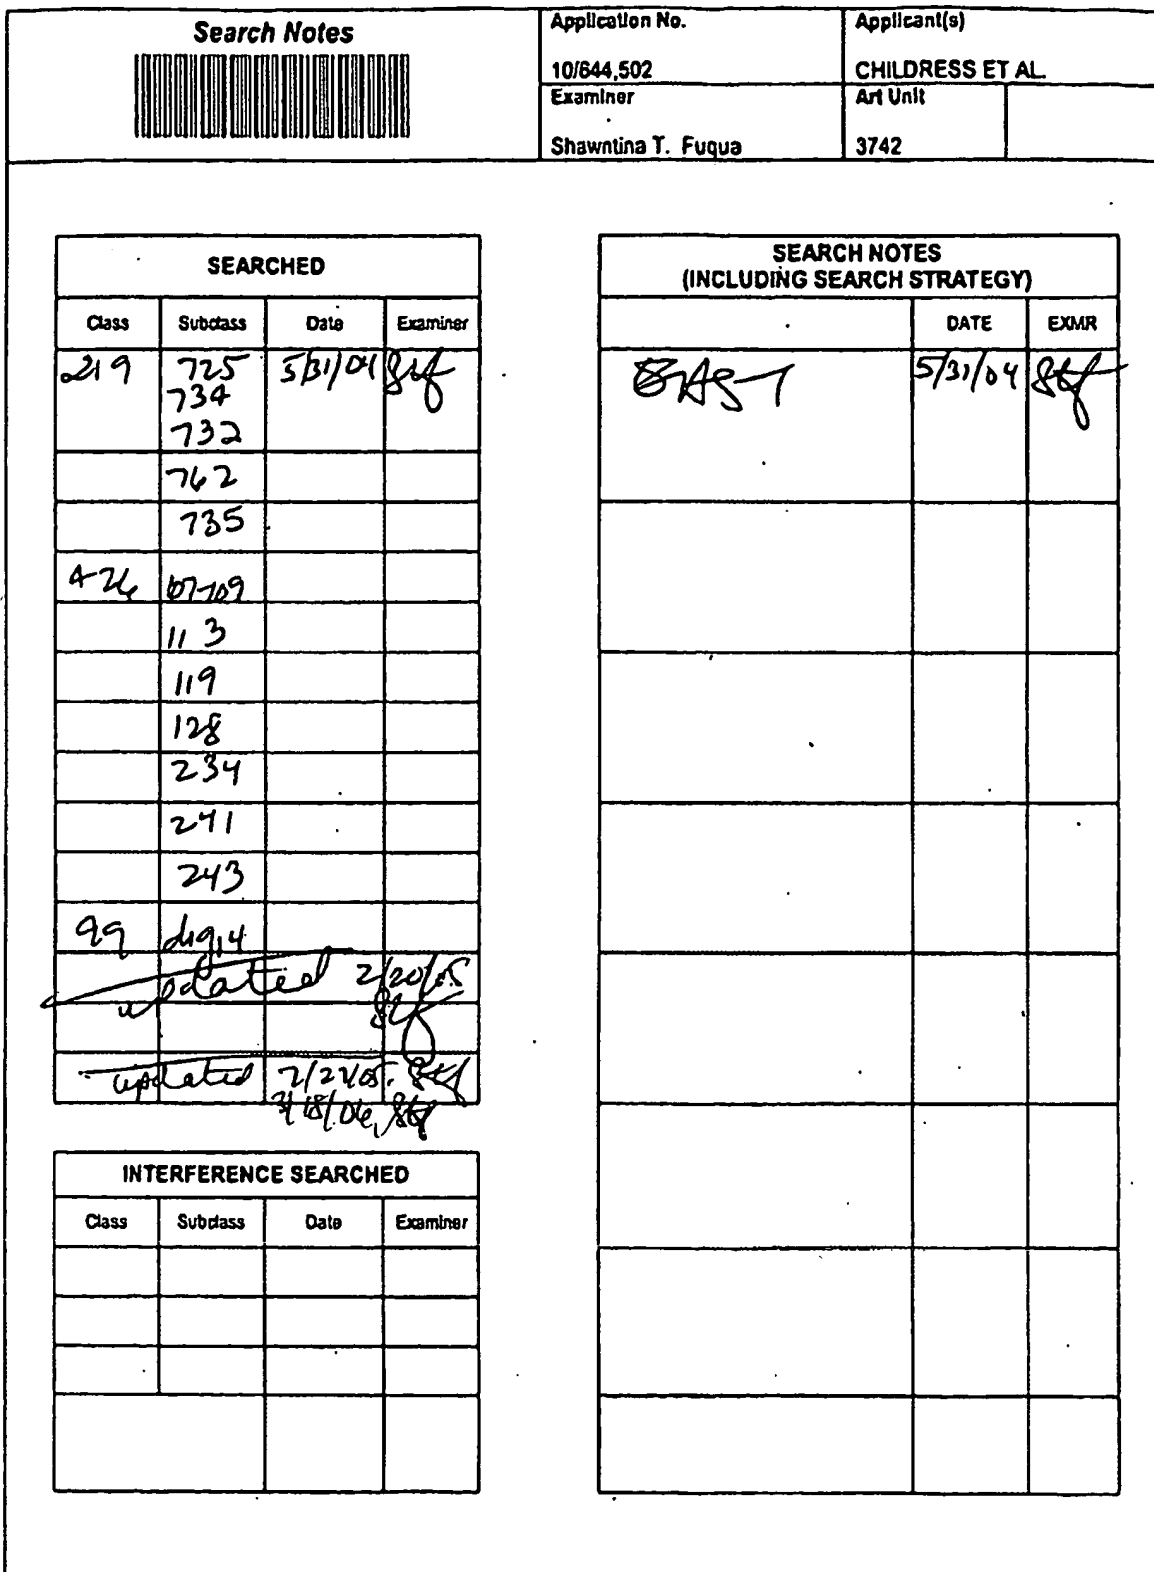 Search Notes
Application No.
10/644,502
Applicant(s)
CHILDRESS ET AL.
Examiner
Shawntina T. Fuqua
Art Unit
3742
SEARCHED
Class Subclass Date Examiner
219 725 5/31/04 stf
734
732
762
735
426 107-109
113
119
128
234
241
243
99 dig. 14
updated 2/20/05
stf
updated 2/22/05, stf
3/18/06, stf
INTERFERENCE SEARCHED
Class Subclass Date Examiner
SEARCH NOTES
(INCLUDING SEARCH STRATEGY)
DATE EXMR
EAST 5/31/04 stf